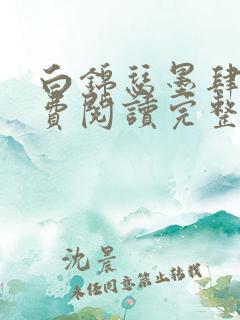 白錦瑟墨肆
費閱讀完整
沈晨
未经同意禁止转载